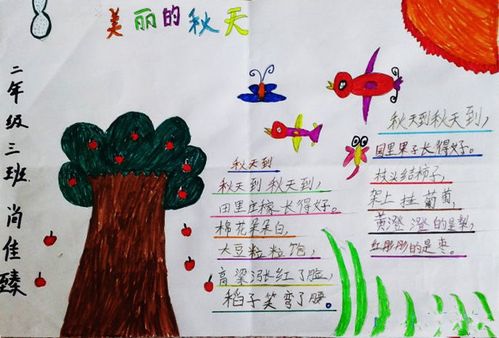 8
美丽的秋天
二年级三班 尚佳臻
秋天到
秋天到秋天到,
田里庄稼长得好。
棉花朵朵白,
大豆粒粒饱,
高粱涨红了脸,
稻子笑弯了腰。
秋天到秋天到,
园里果子长得好。
枝头结柿子,
架上挂葡萄,
黄澄澄的是梨,
红彤彤的是枣。